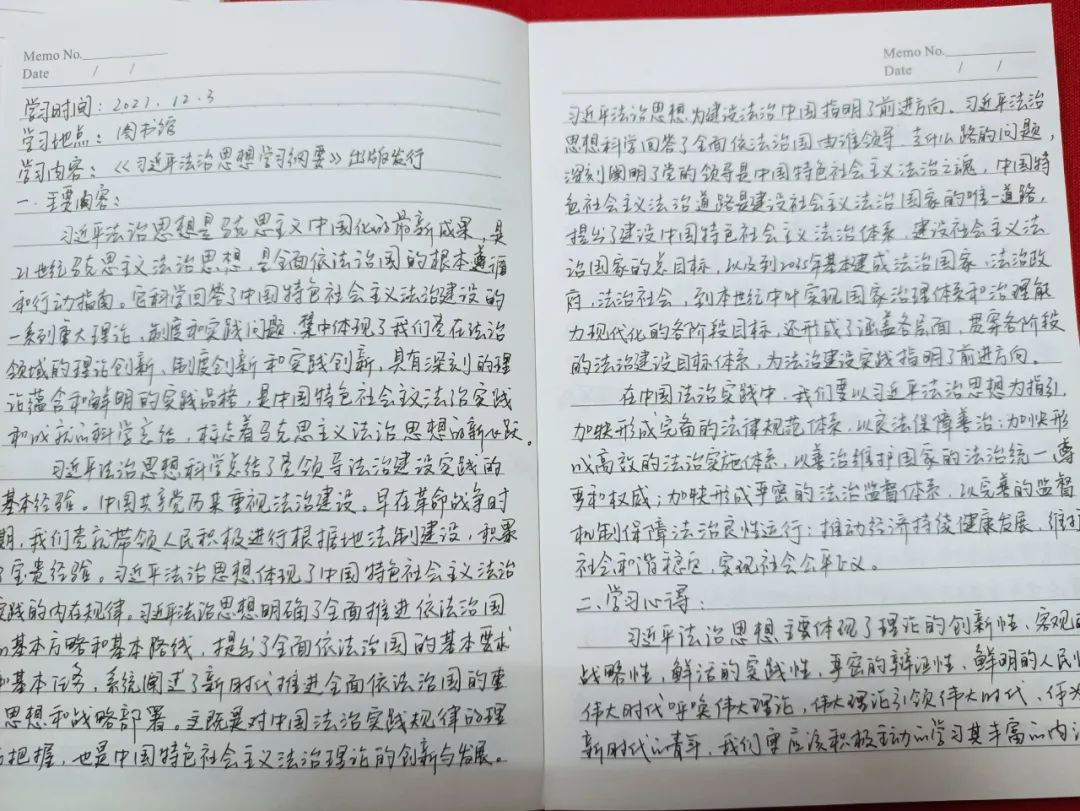 Memo No.
Date / /
学习时间：2021.12.3
学习地点：图书馆
学习内容：《习近平法治思想学习纲要》出版发行
一、主要内容：
习近平法治思想是马克思主义中国化的最新成果，是
21世纪马克思主义法治思想，是全面依法治国的根本遵循
和行动指南。它科学回答了中国特色社会主义法治建设的
一系列重大理论，制度和实践问题，集中体现了我们党在法治
领域的理论创新、制度创新和实践创新，具有深刻的理
论蕴含和鲜明的实践品格，是中国特色社会主义法治实践
和成就的科学总结，标志着马克思主义法治思想的新飞跃。
习近平法治思想科学总结了党领导法治建设实践的
基本经验。中国共产党历来重视法治建设。早在革命战争时
期，我们党就带领人民积极进行根据地法制建设，积累
了宝贵经验。习近平法治思想体现了中国特色社会主义法治
实践的内在规律。习近平法治思想明确了全面推进依法治国
的基本方略和基本路线，提出了全面依法治国的基本要求
和基本任务，系统阐述了新时代推进全面依法治国的重
思想和战略部署。这既是对中国法治实践规律的理
把握，也是中国特色社会主义法治理论的创新与发展。
Memo No.
Date / /
习近平法治思想为建设法治中国指明了前进方向。习近平法治
思想科学回答了全面依法治国由谁领导、走什么路的问题，
深刻阐明了党的领导是中国特色社会主义法治之魂，中国特
色社会主义法治道路是建设社会主义法治国家的唯一道路，
提出了建设中国特色社会主义法治体系，建设社会主义法
治国家的总目标，以及到2035年基本建成法治国家、法治政
府，法治社会，到本世纪中叶实现国家治理体系和治理能
力现代化的各阶段目标，还形成了涵盖各层面，贯穿各阶段
的法治建设目标体系，为法治建设实践指明了前进方向。
在中国法治实践中，我们要以习近平法治思想为指引，
加快形成完备的法律规范体系，以良法保障善治；加快形
成高效的法治实施体系，以善治维护国家的法治统一、尊
严和权威；加快形成严密的法治监督体系，以完善的监督
机制保障法治良性运行；推动经济持续健康发展，维护
社会和谐稳定，实现社会公平正义。
二、学习心得：
习近平法治思想主要体现了理论的创新性，客观的
战略性，鲜活的实践性，严密的辩证性，鲜明的人民性
伟大时代呼唤伟大理论，伟大理论引领伟大时代，作为
新时代的青年，我们更应该积极主动的学习其丰富的内